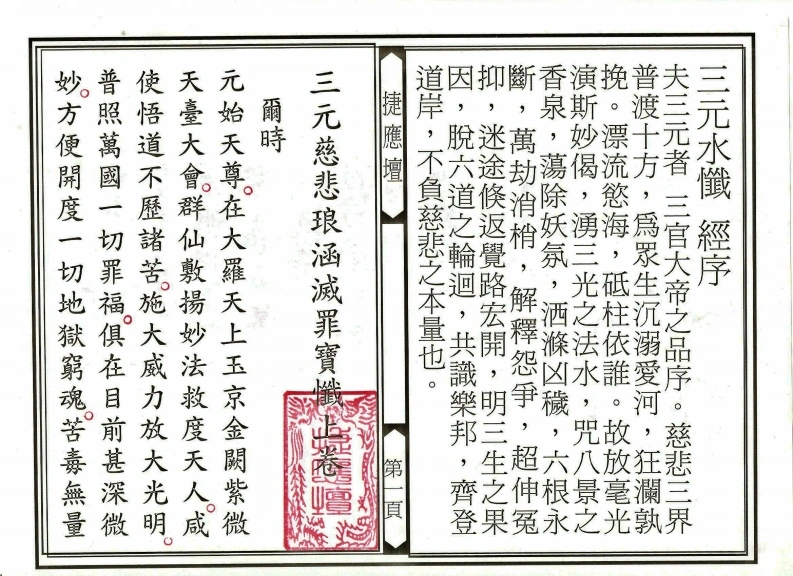 三元水懺 經序
夫三元者 三官大帝之品序。慈悲三界
普渡十方，爲眾生沉溺愛河，狂瀾孰
挽。漂流慾海，砥柱依誰。故放毫光
演斯妙偈，湧三光之法水，咒八景之
香泉，蕩除妖氛，洒滌凶穢，六根永
斷，萬劫消梢，解釋怨爭，超伸冤
抑，迷途倏返覺路宏開，明三生之果
因，脫六道之輪迴，共識樂邦，齊登
道岸，不負慈悲之本量也。
捷應壇
第一頁
三元慈悲琅涵滅罪寶懺上卷
爾時
元始天尊。在大羅天上玉京金闕紫微
天臺大會。群仙敷揚妙法救度天人。咸
使悟道不歷諸苦。施大威力放大光明。
普照萬國一切罪福。俱在目前甚深微
妙。方便開度一切地獄窮魂。苦毒無量